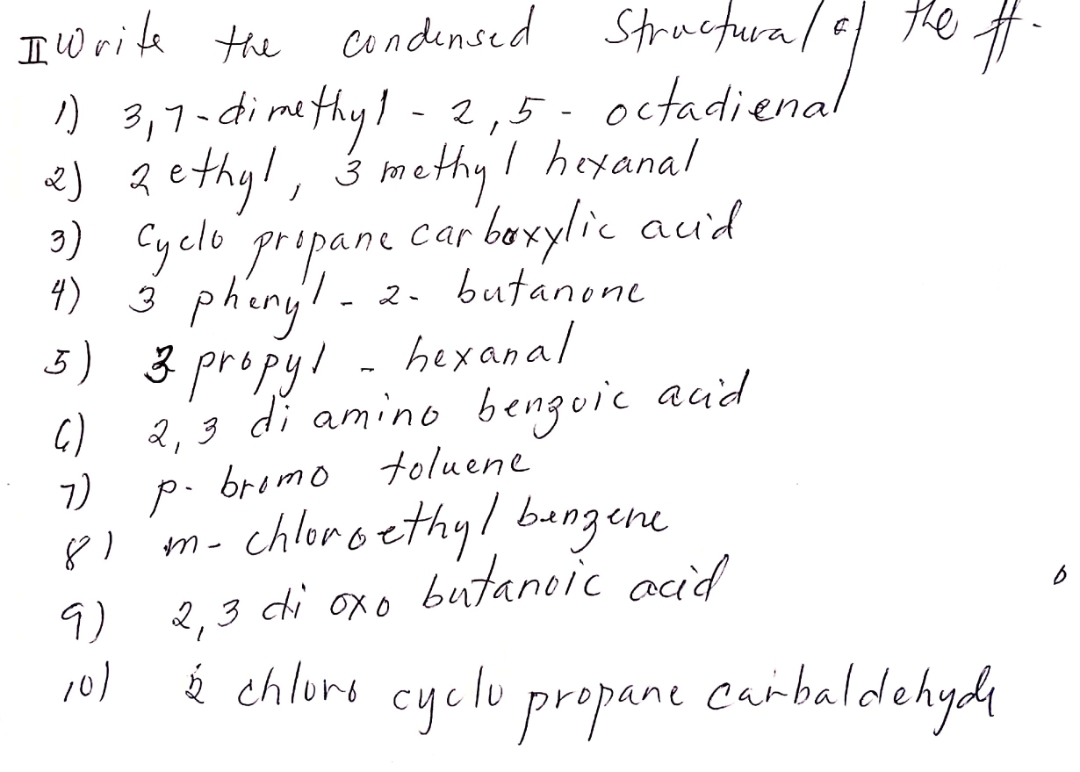 II Write the condensed Structural of the ff.
1) 3,7-dimethyl - 2,5 - octadienal
2) 2 ethyl, 3 methyl hexanal
3) Cyclo propane carboxylic acid
4) 3 phenyl - 2- butanone
5) 3 propyl - hexanal
6) 2,3 di amino benzoic acid
7) p- bromo toluene
8) m- chloroethyl benzene
9) 2,3 di oxo butanoic acid
10) 2 chloro cyclo propane carbaldehyde